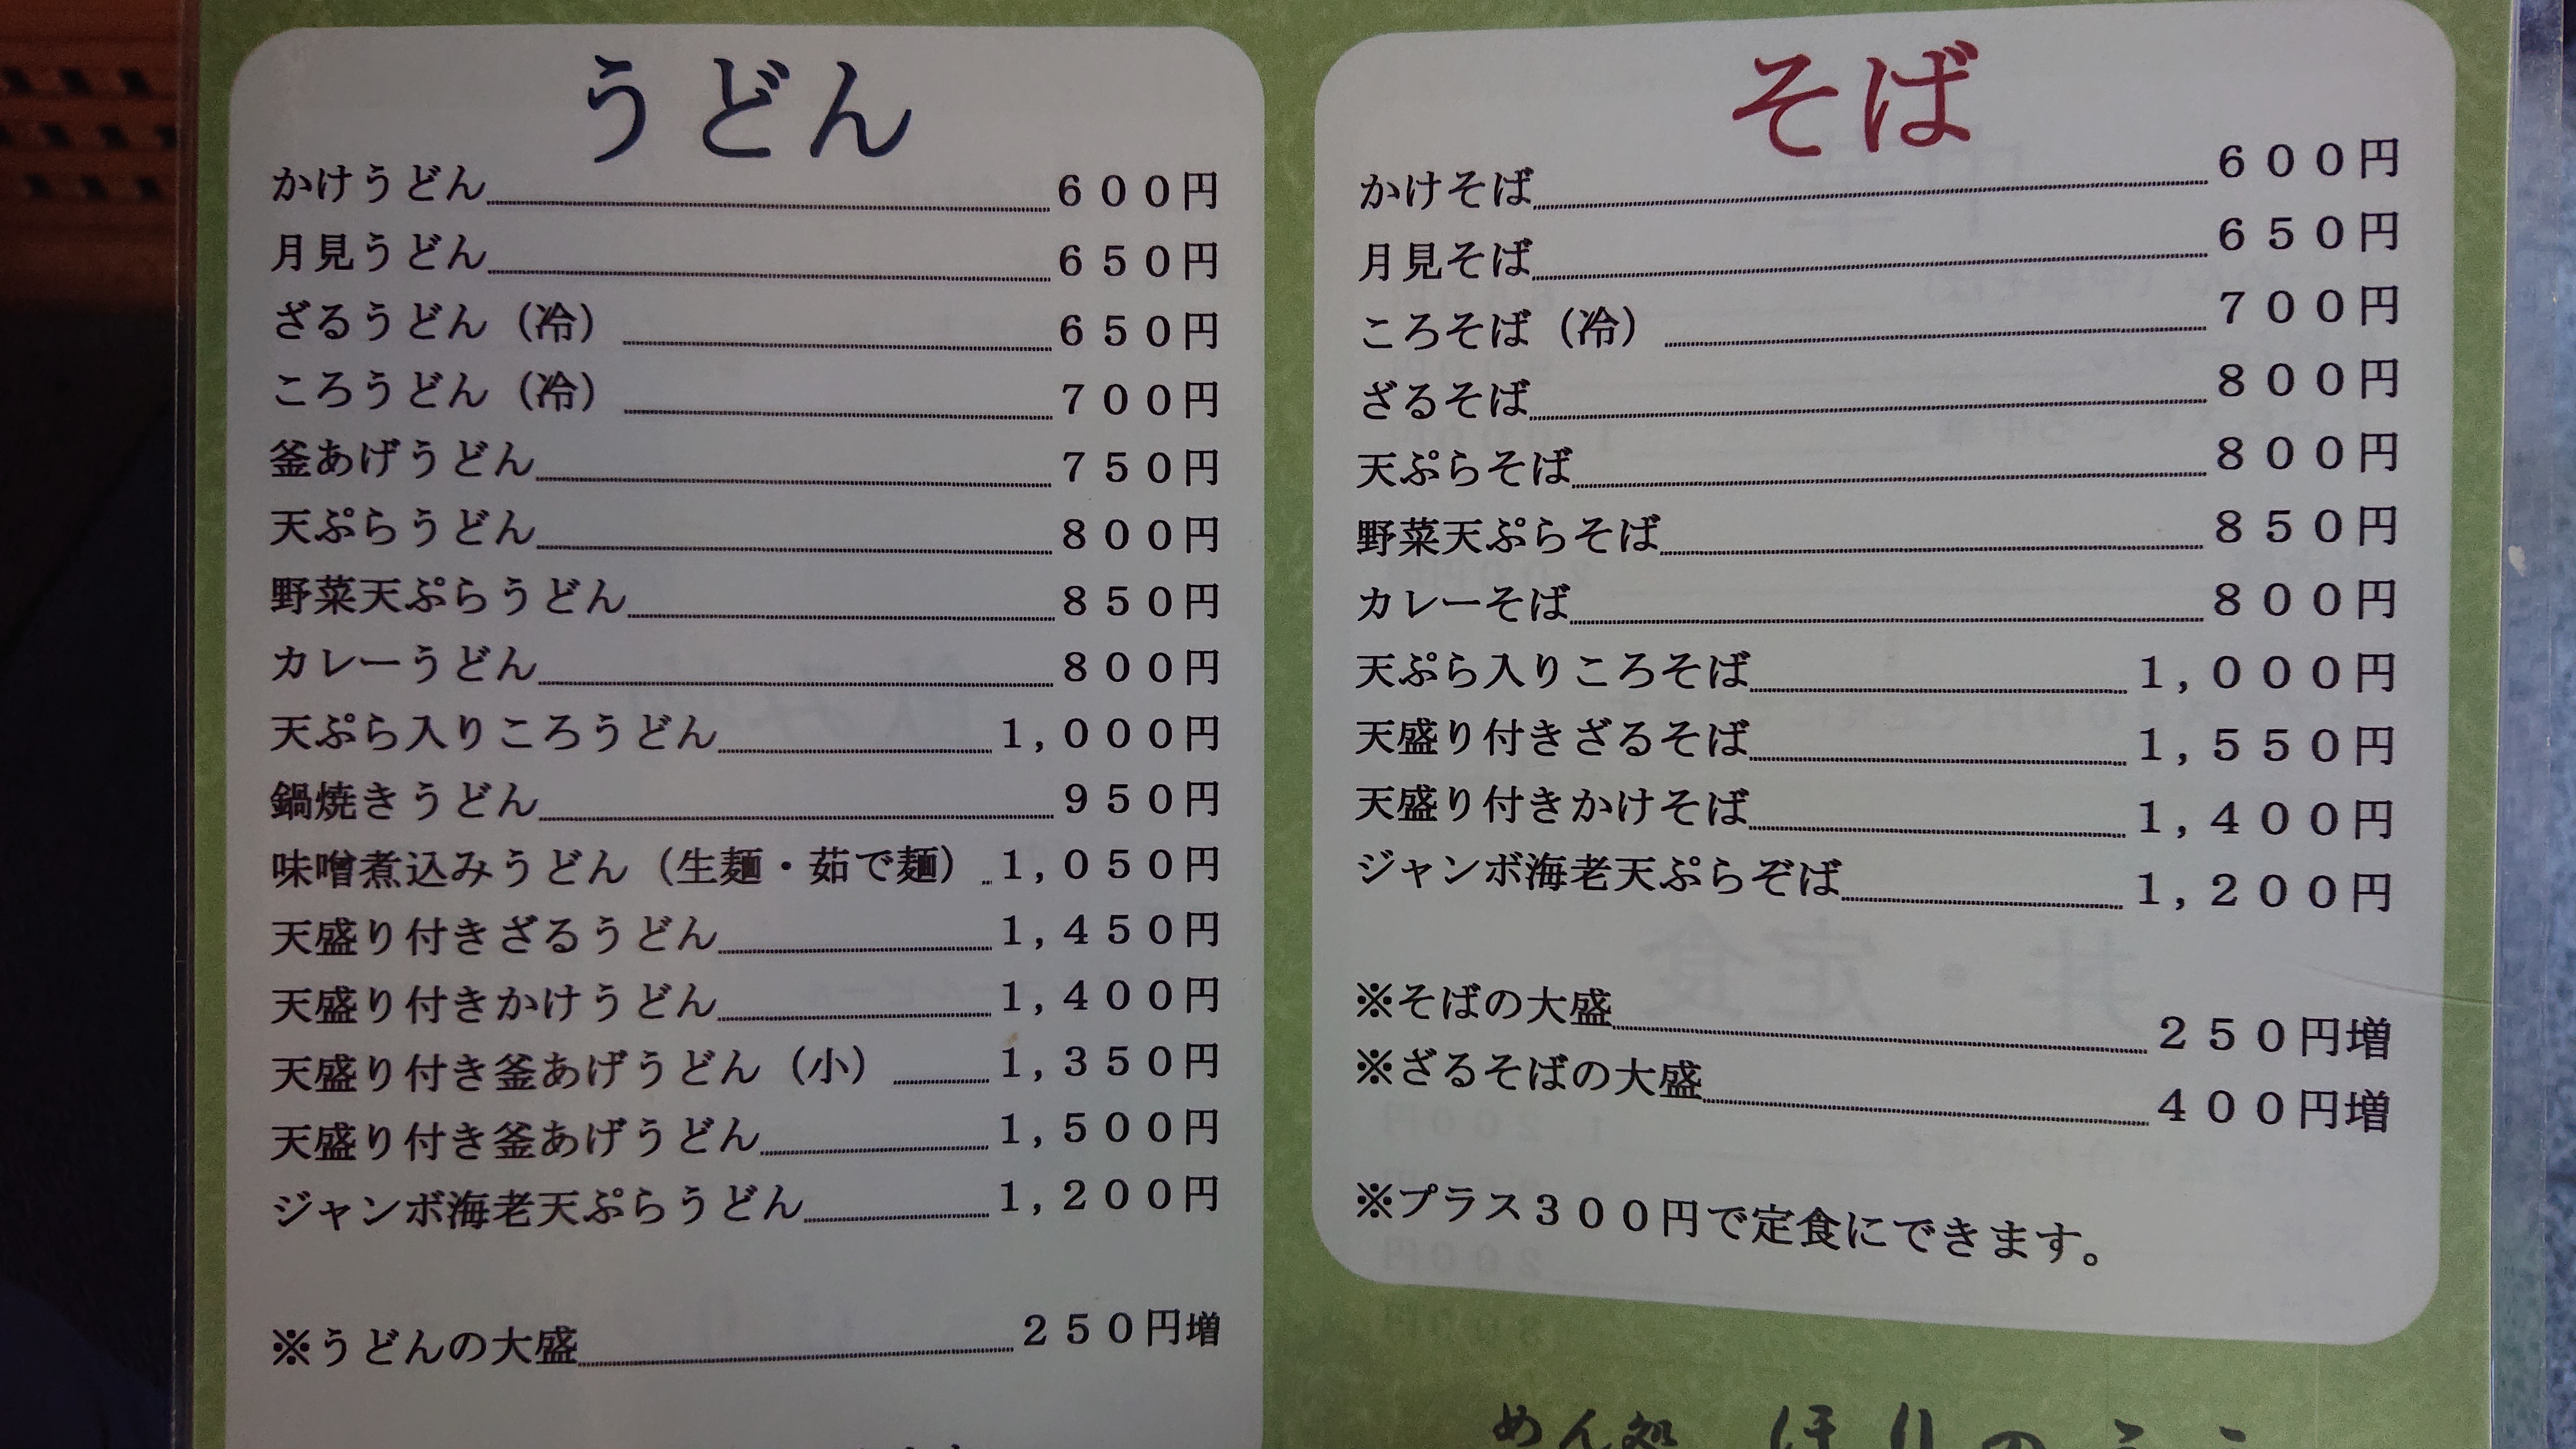 うどん
かけうどん 600円
月見うどん 650円
ざるうどん（冷） 650円
ころうどん（冷） 700円
釜あげうどん 750円
天ぷらうどん 800円
野菜天ぷらうどん 850円
カレーうどん 800円
天ぷら入りころうどん 1,000円
鍋焼きうどん 950円
味噌煮込みうどん（生麺・茹で麺） 1,050円
天盛り付きざるうどん 1,450円
天盛り付きかけうどん 1,400円
天盛り付き釜あげうどん（小） 1,350円
天盛り付き釜あげうどん 1,500円
ジャンボ海老天ぷらうどん 1,200円
※うどんの大盛 250円増
そば
かけそば 600円
月見そば 650円
ころそば（冷） 700円
ざるそば 800円
天ぷらそば 800円
野菜天ぷらそば 850円
カレーそば 800円
天ぷら入りころそば 1,000円
天盛り付きざるそば 1,550円
天盛り付きかけそば 1,400円
ジャンボ海老天ぷらぞば 1,200円
※そばの大盛 250円増
※ざるそばの大盛 400円増
※プラス300円で定食にできます。
めん処